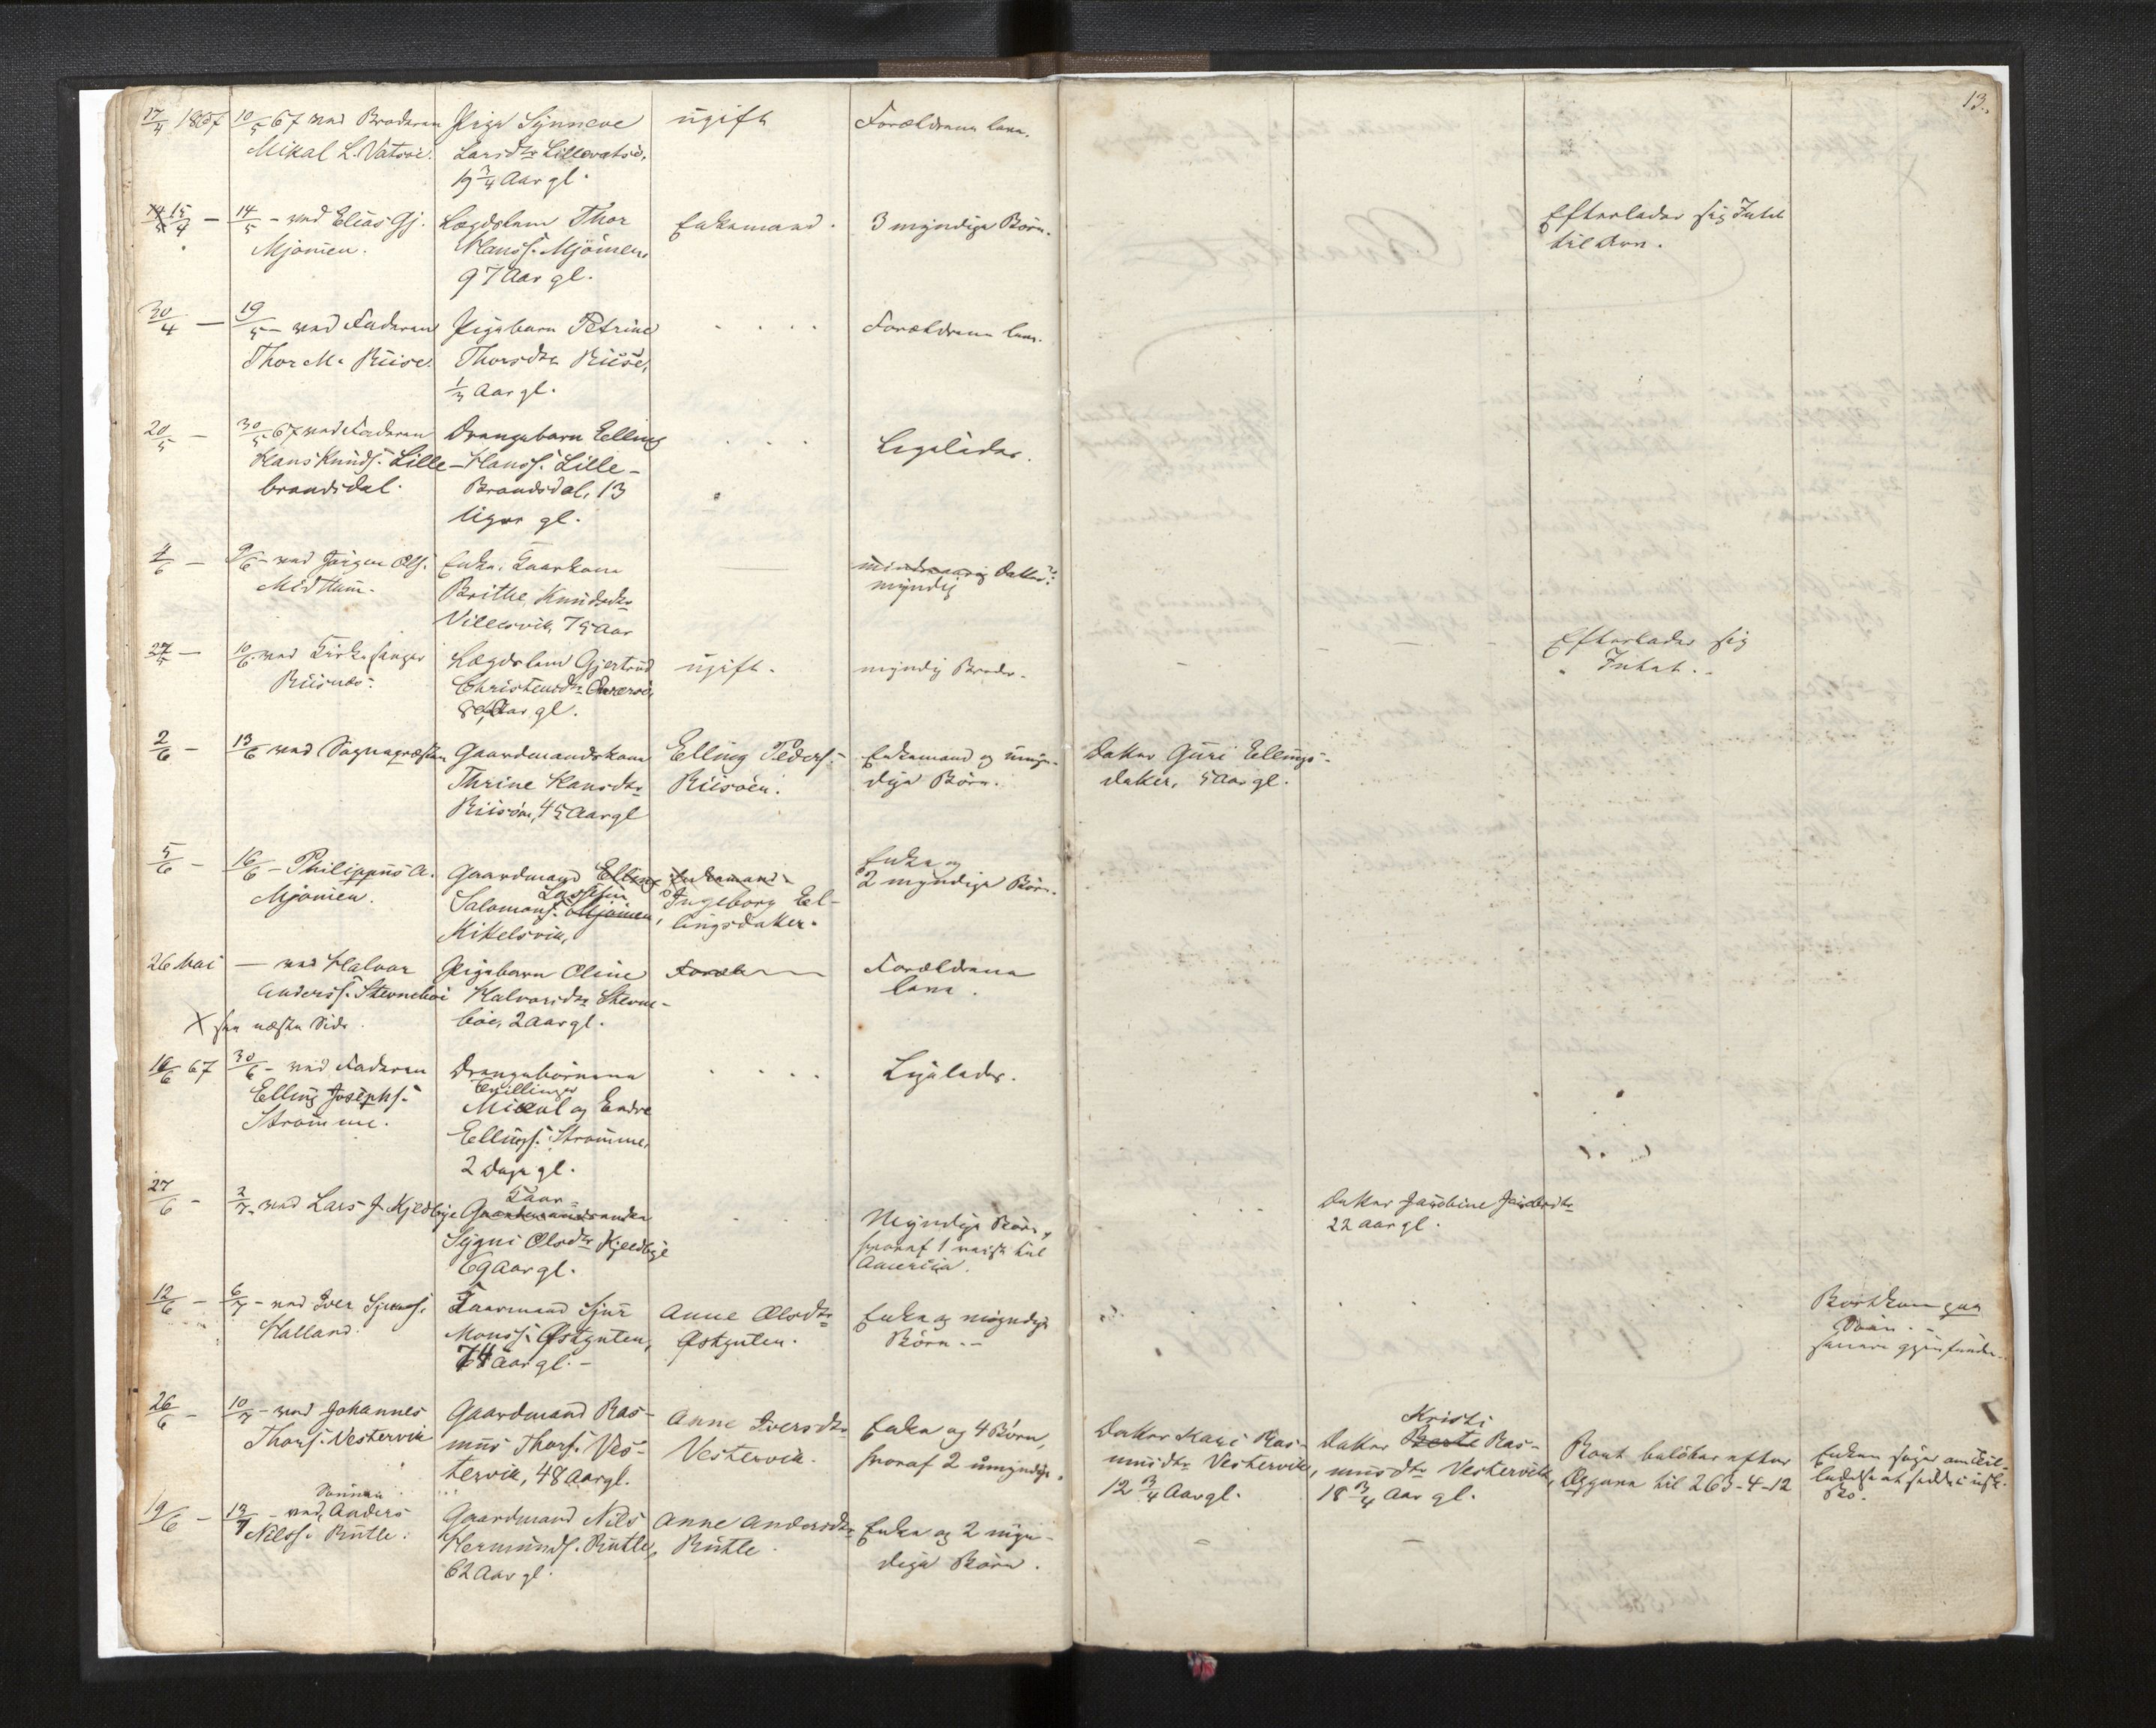 13.
17/4 1867
10/5 67 ved Broderen
Mikal L. Vatsøe.
Pige Synneve
Larsdtr Lillevatsø,
19 3/4 Aar gl.
ugift
Forældrene leve.
15/4 —
14/5 - ved Elias Gj.
Mjømen.
Lægdslem Thor
Hanss. Mjømen,
97 Aar gl.
Enkemand.
3 myndige Børn.
Efterlader sig Intet
til Arv.
30/4 —
19/5 — ved Faderen
Thor M. Riise.
Pigebarn Petrine
Thorsdtr Riise,
Aar gl.
Forældrene leve.
20/5 —
30/5 67 ved Faderen
Hans Knuds. Lille-
brandsdal.
Drengebarn Elling
Hanss. Lille-
Brandsdal, 13
Uger gl.
Ligeledes.
4/6 —
9/6 - ved Jørgen Ols.
Midttum.
Enke, Kaarkone
Brithe Knudsdtr
Villesvik, 75 Aar
mindreaarig Datter
myndig
27/5 —
10/6 ved Kirkesanger
Riisnæs.
Lægdslem Gjertrud
Christensdtr
Aar gl.
ugift.
myndig Broder.
Efterlader sig
Intet.
2/6 —
13/6 ved Sognepræsten
Gaardmandskone
Thrine Hansdtr
Riisøen, 45 Aar gl
Elling Peders.
Riisøen.
Enkemand og umyn-
dige Børn.
Datter Guri Ellings-
datter, 5 Aar gl.
5/6 —
16/6 - Philippus A.
Mjømen.
Gaardmand Elling
Lassesen
Salomons. Mjømen,
Mikkelsvik,
Enkemand
Ingeborg El-
lingsdatter.
Enke og
2 myndige Børn.
26 Mai
— ved Halvor
Anderss. Stevnebøe
Pigebarn Oline
Halvorsdtr Stevne-
bøe, 2 Aar gl.
Foræl
Forældrene
leve.
X see næste Side.
16/6 67
30/6 - ved Faderen
Elling Josephs.
Strømme.
Drengebørnene
Tvillinger
Mikal og Endre
Ellings. Strømme,
2 Dage gl.
Ligeledes.
27/6 -
2/7 - ved Lars J. Kjeldbye
Kaar-
Gaardmandsenke
Sygni Olsdtr Kjeldbye
69 Aar gl.
Myndige Børn,
hvoraf 1 reist til
America.
Datter Jacobine Jacobsdtr
22 Aar gl.
12/6 -
6/7 - ved Iver Sjurs.
Halland.
Kaarmand Sjur
Monss. Østgulen,
74 Aar gl. -
Anne Olsdtr
Østgulen.
Enke og myndige
Børn. -
Bortkom
senere gjenfunden.
26/6 -
10/7 - ved Johannes
Thors. Vestervik
Gaardmand Ras-
mus Thors. Ves-
tervik, 48 Aar gl.
Anne Iversdtr
Vestervik.
Enke og 4 Børn,
hvoraf 2 umyndige.
Datter Kari Ras-
musdtr Vestervik,
12 3/4 Aar gl.
Kristi
Datter Berte Ras-
musdtr Vestervik,
18 3/4 Aar gl.
Boet beløber efter
Opgave til 263-4-12
Enken søger om Til-
ladelse at sidde i usk.
Bo.
19/6 -
Sønnen
13/7 - ved Anders
Nilss. Rutle.
Gaardmand Nils
Hermunds. Rutle,
62 Aar gl.
Anne Andersdtr
Rutle.
Enke og 2 myn-
dige Børn.